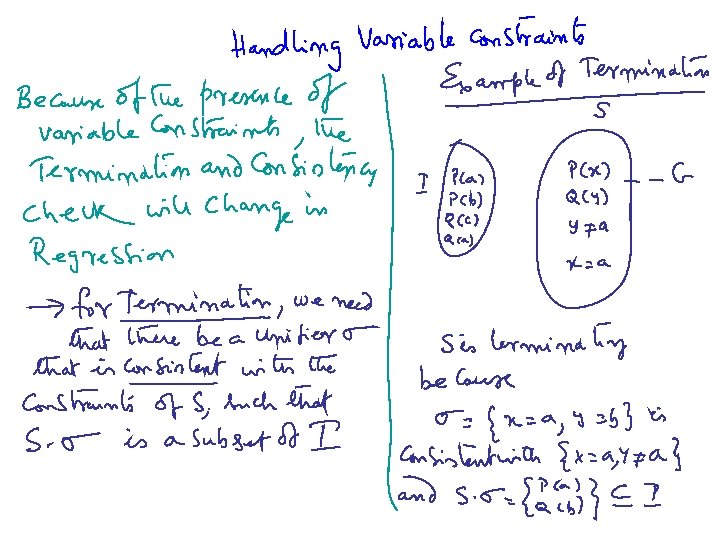 Handling Variable Constraints
Because of the presence of
variable Constraints, the
Termination and Consistency
check will change in
Regression
→ for Termination, we need
that there be a unifier σ
that is consistent with the
Constraints of S, such that
S.σ is a subset of I
Example of Termination
S
I
P(a)
P(b)
Q(a)
P(x) - - G
Q(y)
y≠a
x=a
S is terminating
because
σ = {x=a, y=b} is
Consistent with {x=a, y≠a}
and S.σ = {P(a) Q(b)} ⊆ I